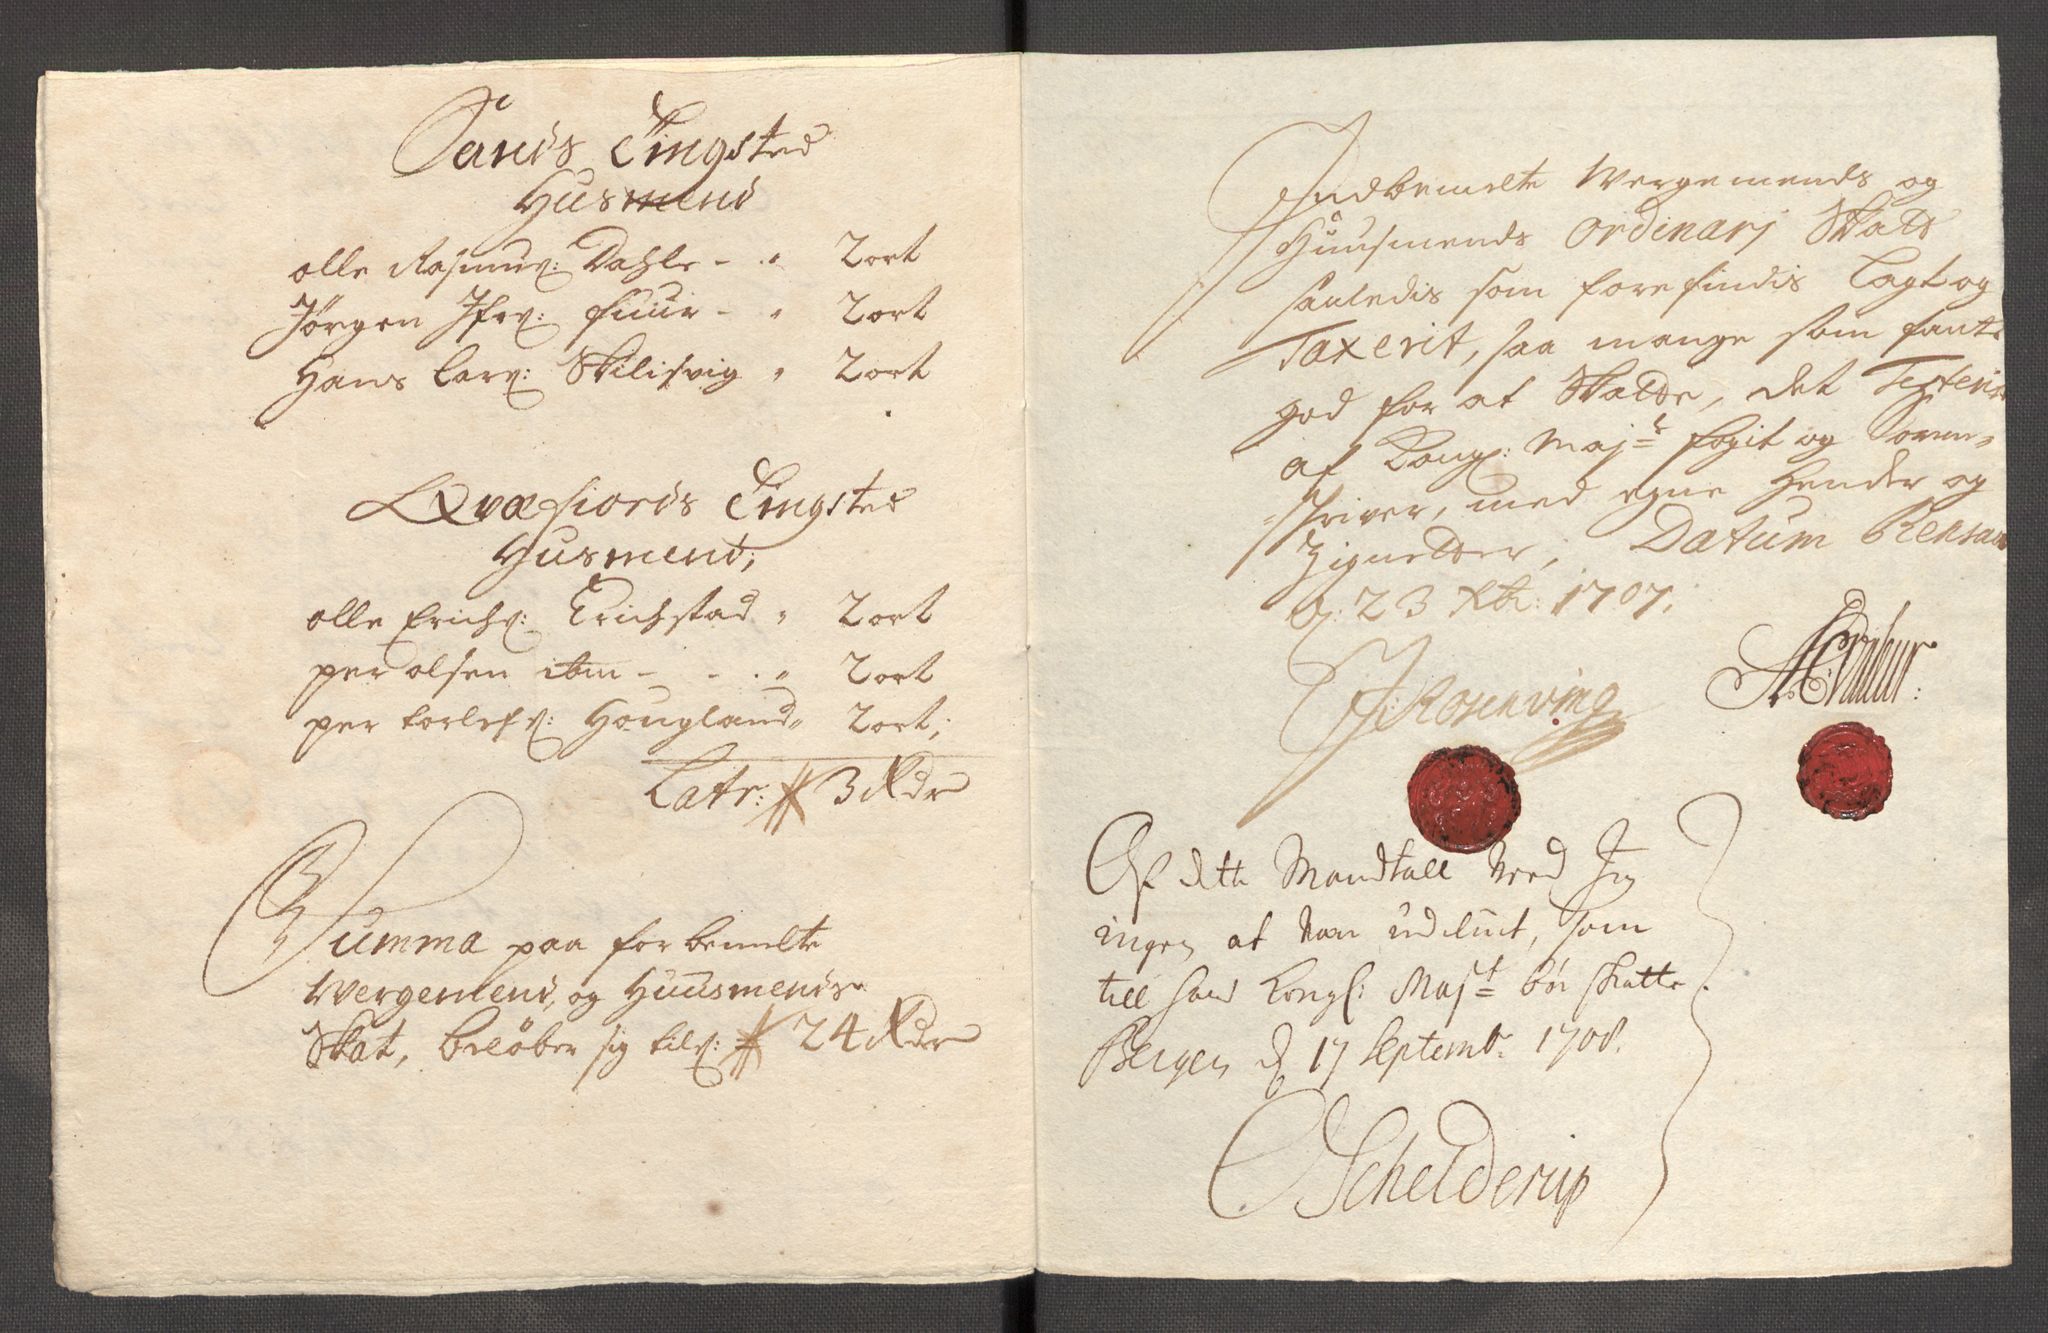 Sands Tingsted
Husmend
olle Rasmus: Dahle - " 2 ort
Jørgen Ifv: fuur - " 2 ort
Hans Larˢ: Skilisvig " 2 ort
Qvæfiords Tingsted
Husmend;
olle Erichs: Erichstad " 2 ort
per olsen ibm - - - " 2 ort
per torlefs: Hougland " 2 ort;
Latr: 3 Rdr
Summa paa forbemelte
Wergemend, og Huusmends
Skat, beløber sig til: 24 Rdr
Indbemelte Wergemends og
Huusmends Ordinarj Skatt
saaledis som forefindis Lagt og
Taxerit, saa mange som fants
god for at Skatte, det Testerer
af Kongl: Majts fogit og Soren-
-schriver, med egne Hender og
Zignetter, Datum
d: 23 Xbr: 1707.
Rosenving
Af dette Mandtall Veed Jeg
ingen at vær udeluct, som
till sand Kongl: Majt bør skatte
Bergen d 17 Septemb: 1708.
Schelderup